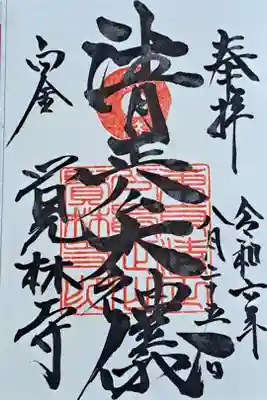 奉拝
令和六年
八月二十五日
清正公大神儀
白金
覚林寺